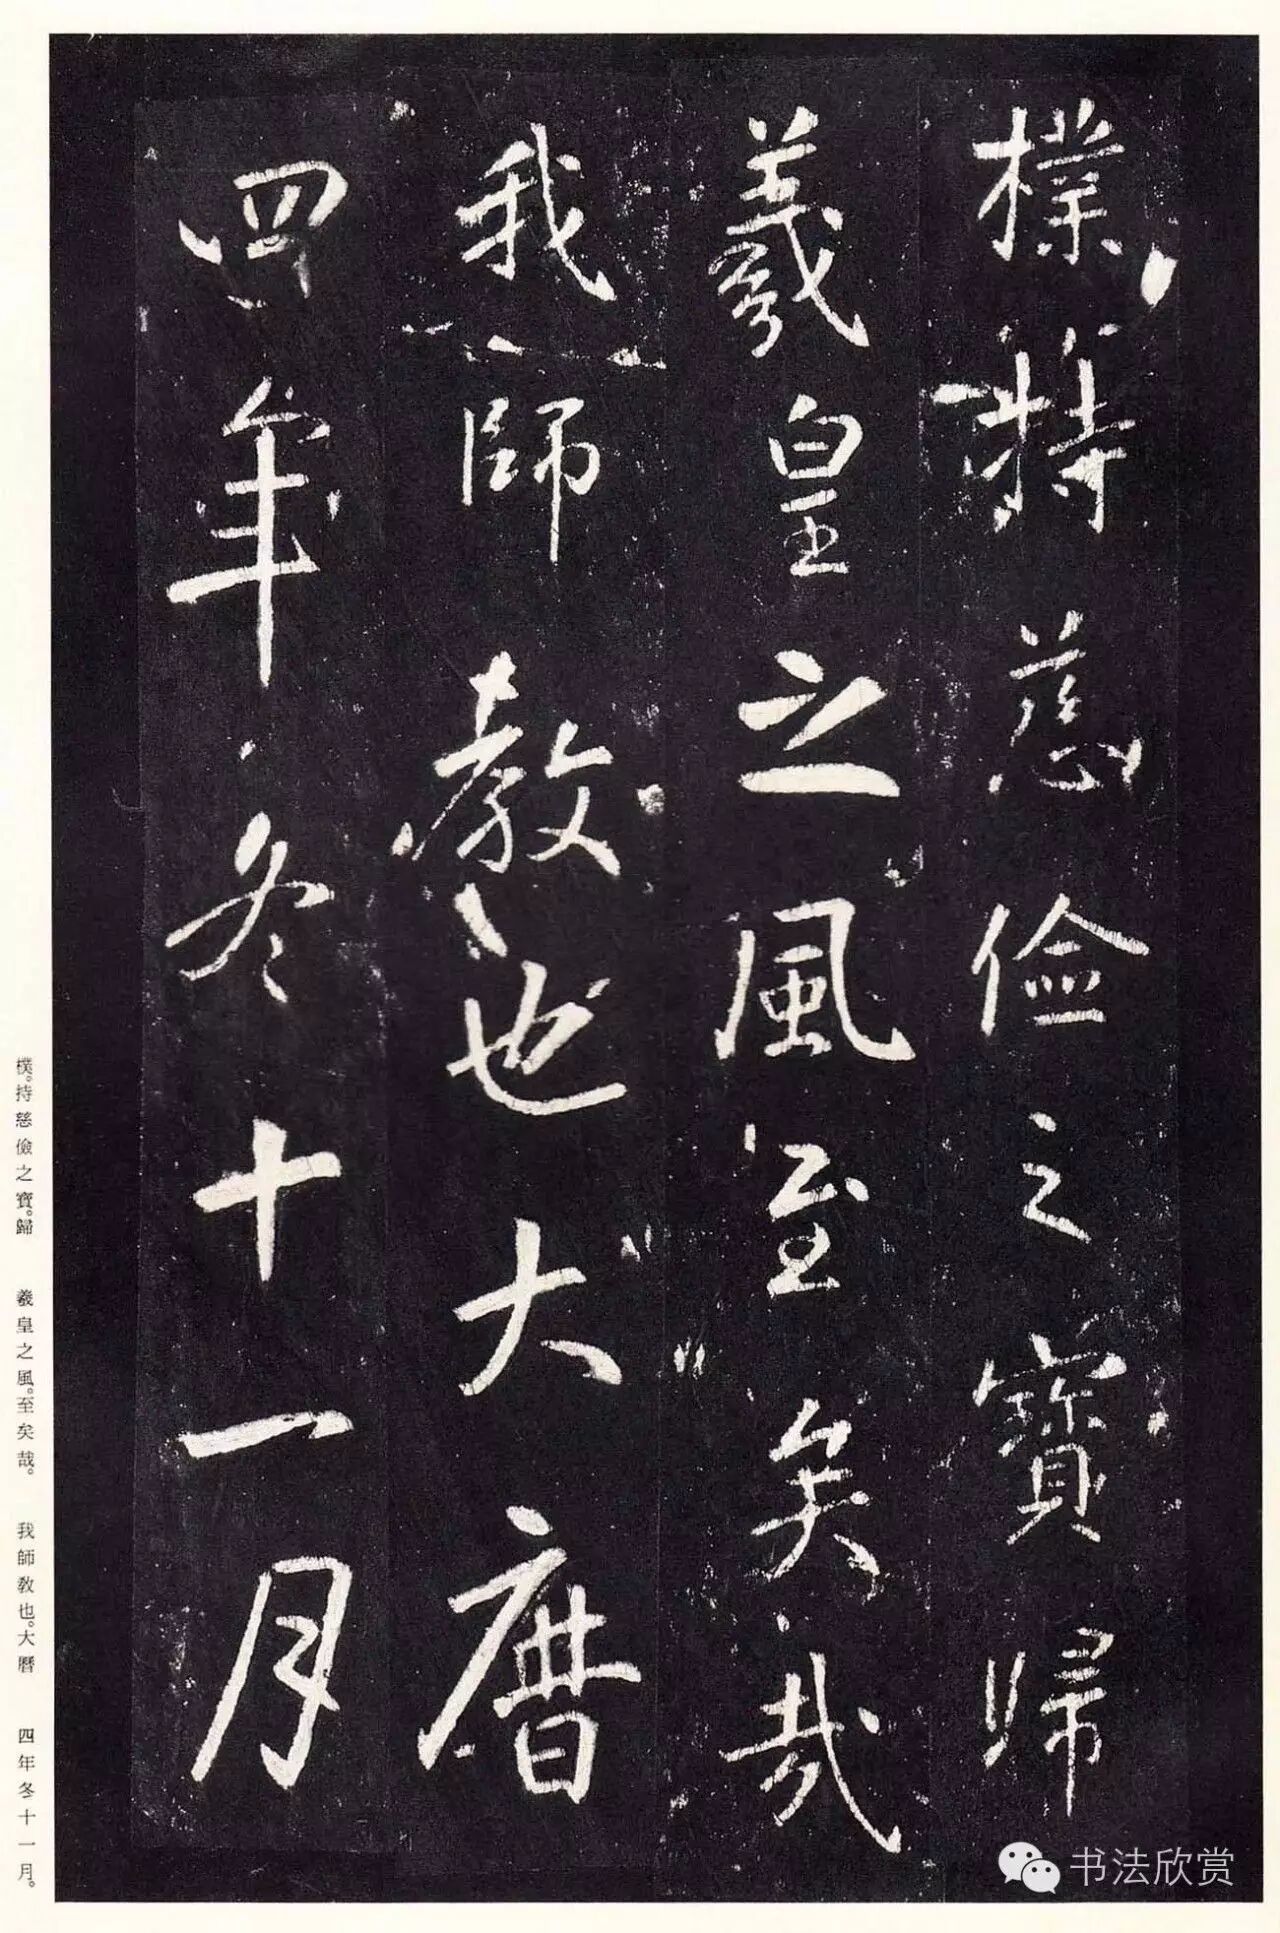 樸持慈儉之寶歸
羲皇之風至矣哉
我師教也大曆
四年冬十一月
樸。持慈儉之寶。歸　羲皇之風。至矣哉。　我師教也。大曆　四年冬十一月。
书法欣赏